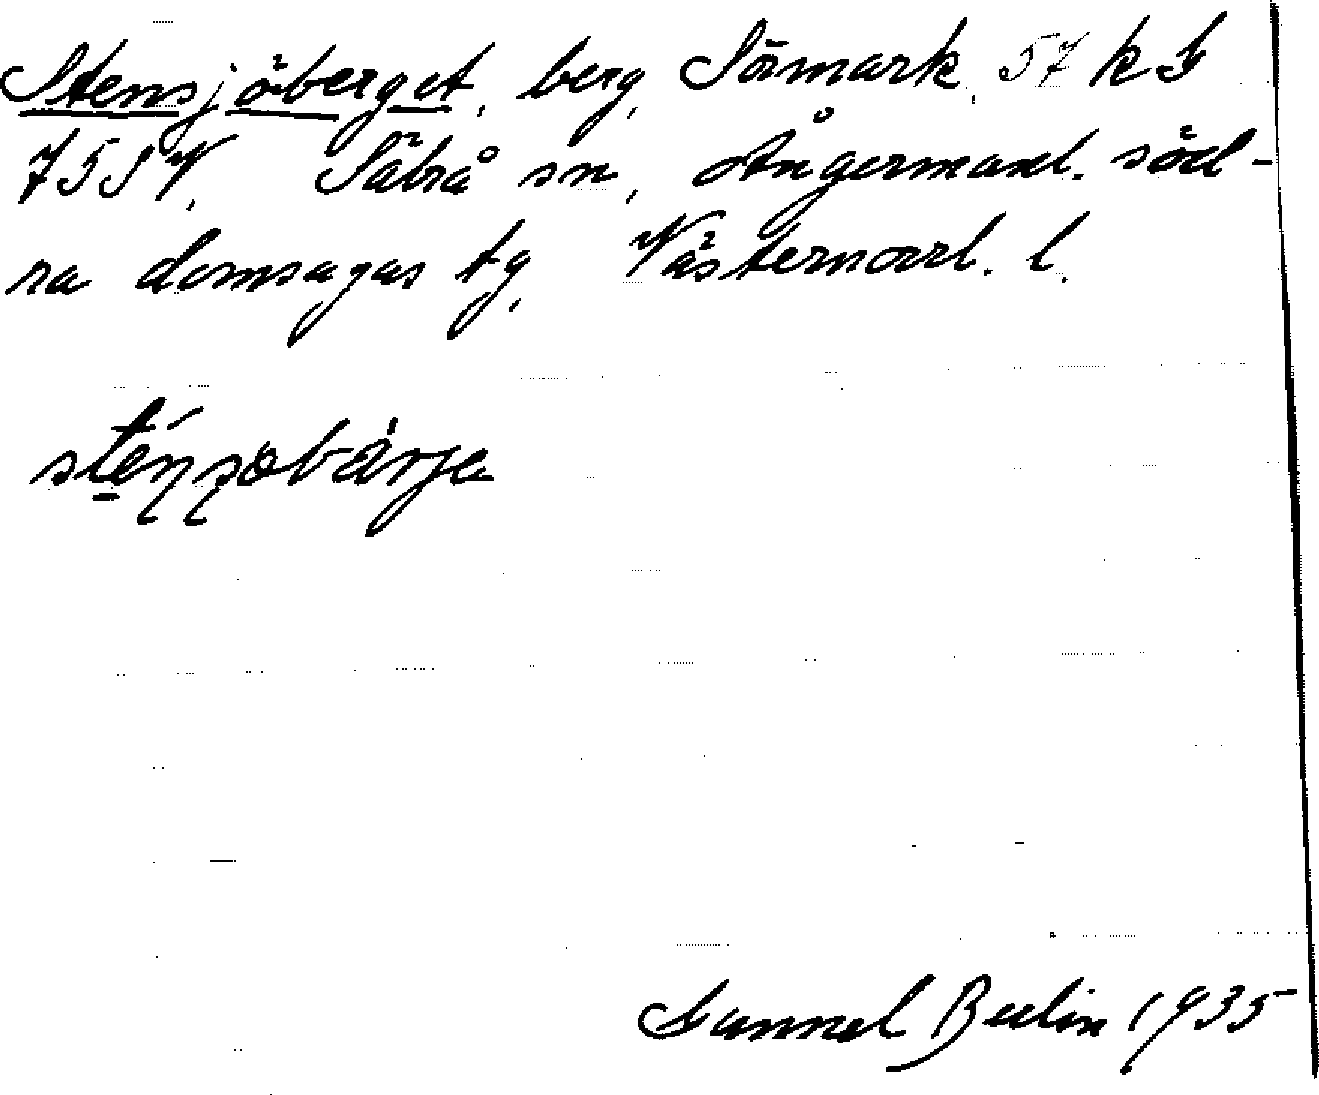 Stensjöberget, berg, Sörmark, 57 k S
75 S V, Säbrå sn, Ångermanl. söd-
ra domsagas tg, Västernorrl. l.
sténsobárje
Samuel Bulin 1935